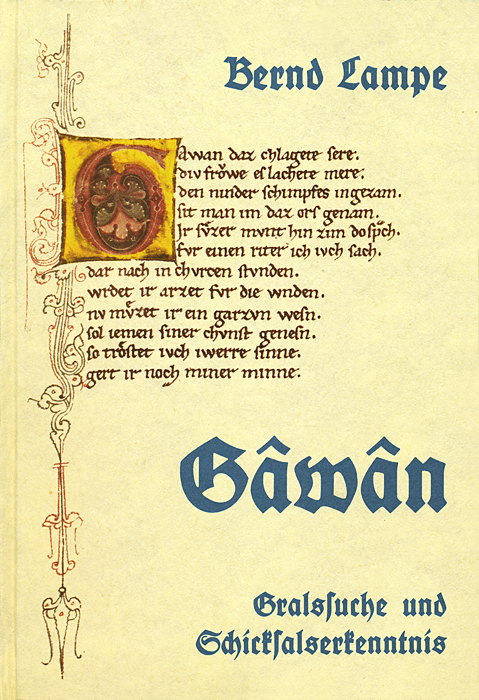 Bernd Lampe
Gawan daz chlagete sere.
div frowe es lachete mere.
den minder schimpfes ingezam.
sit man im daz ors genam.
Ir sv̊zer mvnt hin zim do spͣch.
fvr einen riter ich ivch sach.
dar nach in chvrcen stvnden.
wrdet ir arzet fvr die wnden.
nv mv̊zet ir ein garzvn wesn.
sol iemen siner chvnst genesn.
so trostet ivch iwerre sinne.
gert ir noch miner minne.
Gâwân
Gralsſuche und
Schickſalserkenntnis